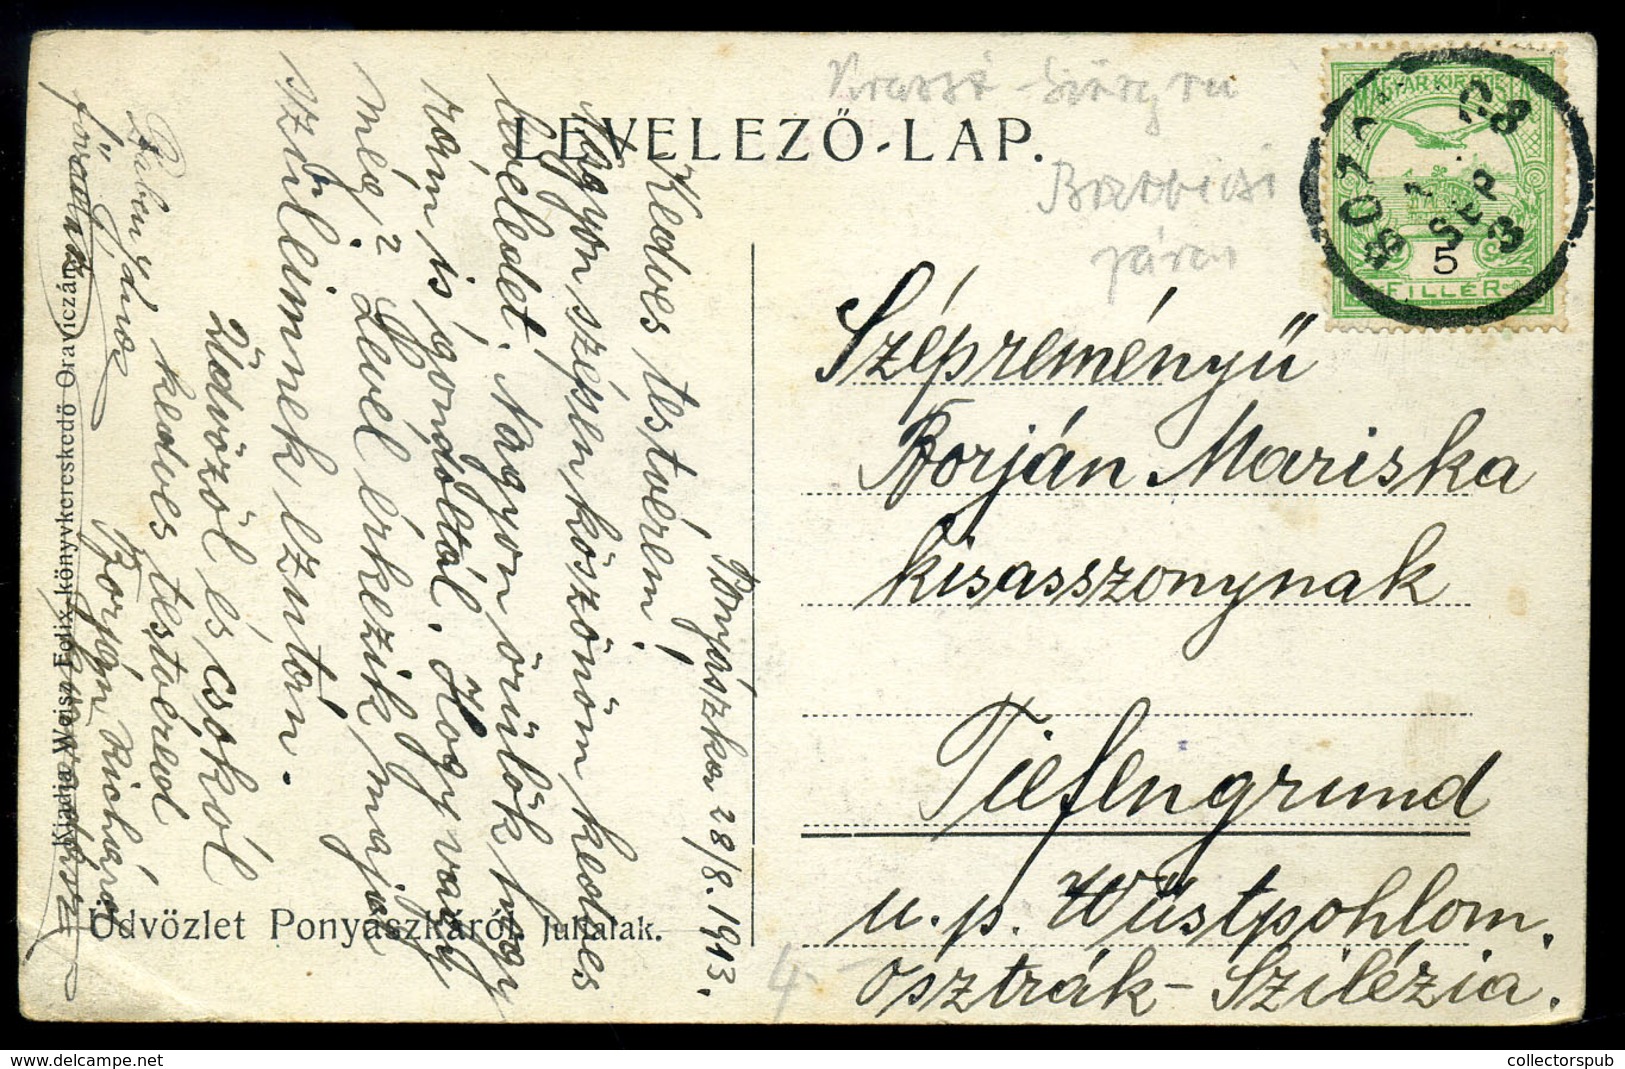 Krassó-Szörény vm
LEVELEZŐ-LAP.
Bozovicsi
járás
MAGYAR KIR. POSTA
5
FILLÉR
913 SEP
Szépreményű
Borján Mariska
kisasszonynak
Tiefengrund
u.p. Wüstpohlom.
osztrák-Szilézia.
Ponyászka 28/8. 1913.
Kedves testvérem!
Nagyon szépen köszönöm kedves
leveledet. Nagyon örülök hogy
rám is gondoltál. Hogy vagy
még? Levél érkezik majd
szüleimnek ezután.
Üdvözöl és csókol
kedves testvéred
Borján Richárd
Üdvözlet Ponyászkáról Juhalak.
Kiadja Weisz Felix könyvkereskedő Oraviczán.
4.-
collectorspub